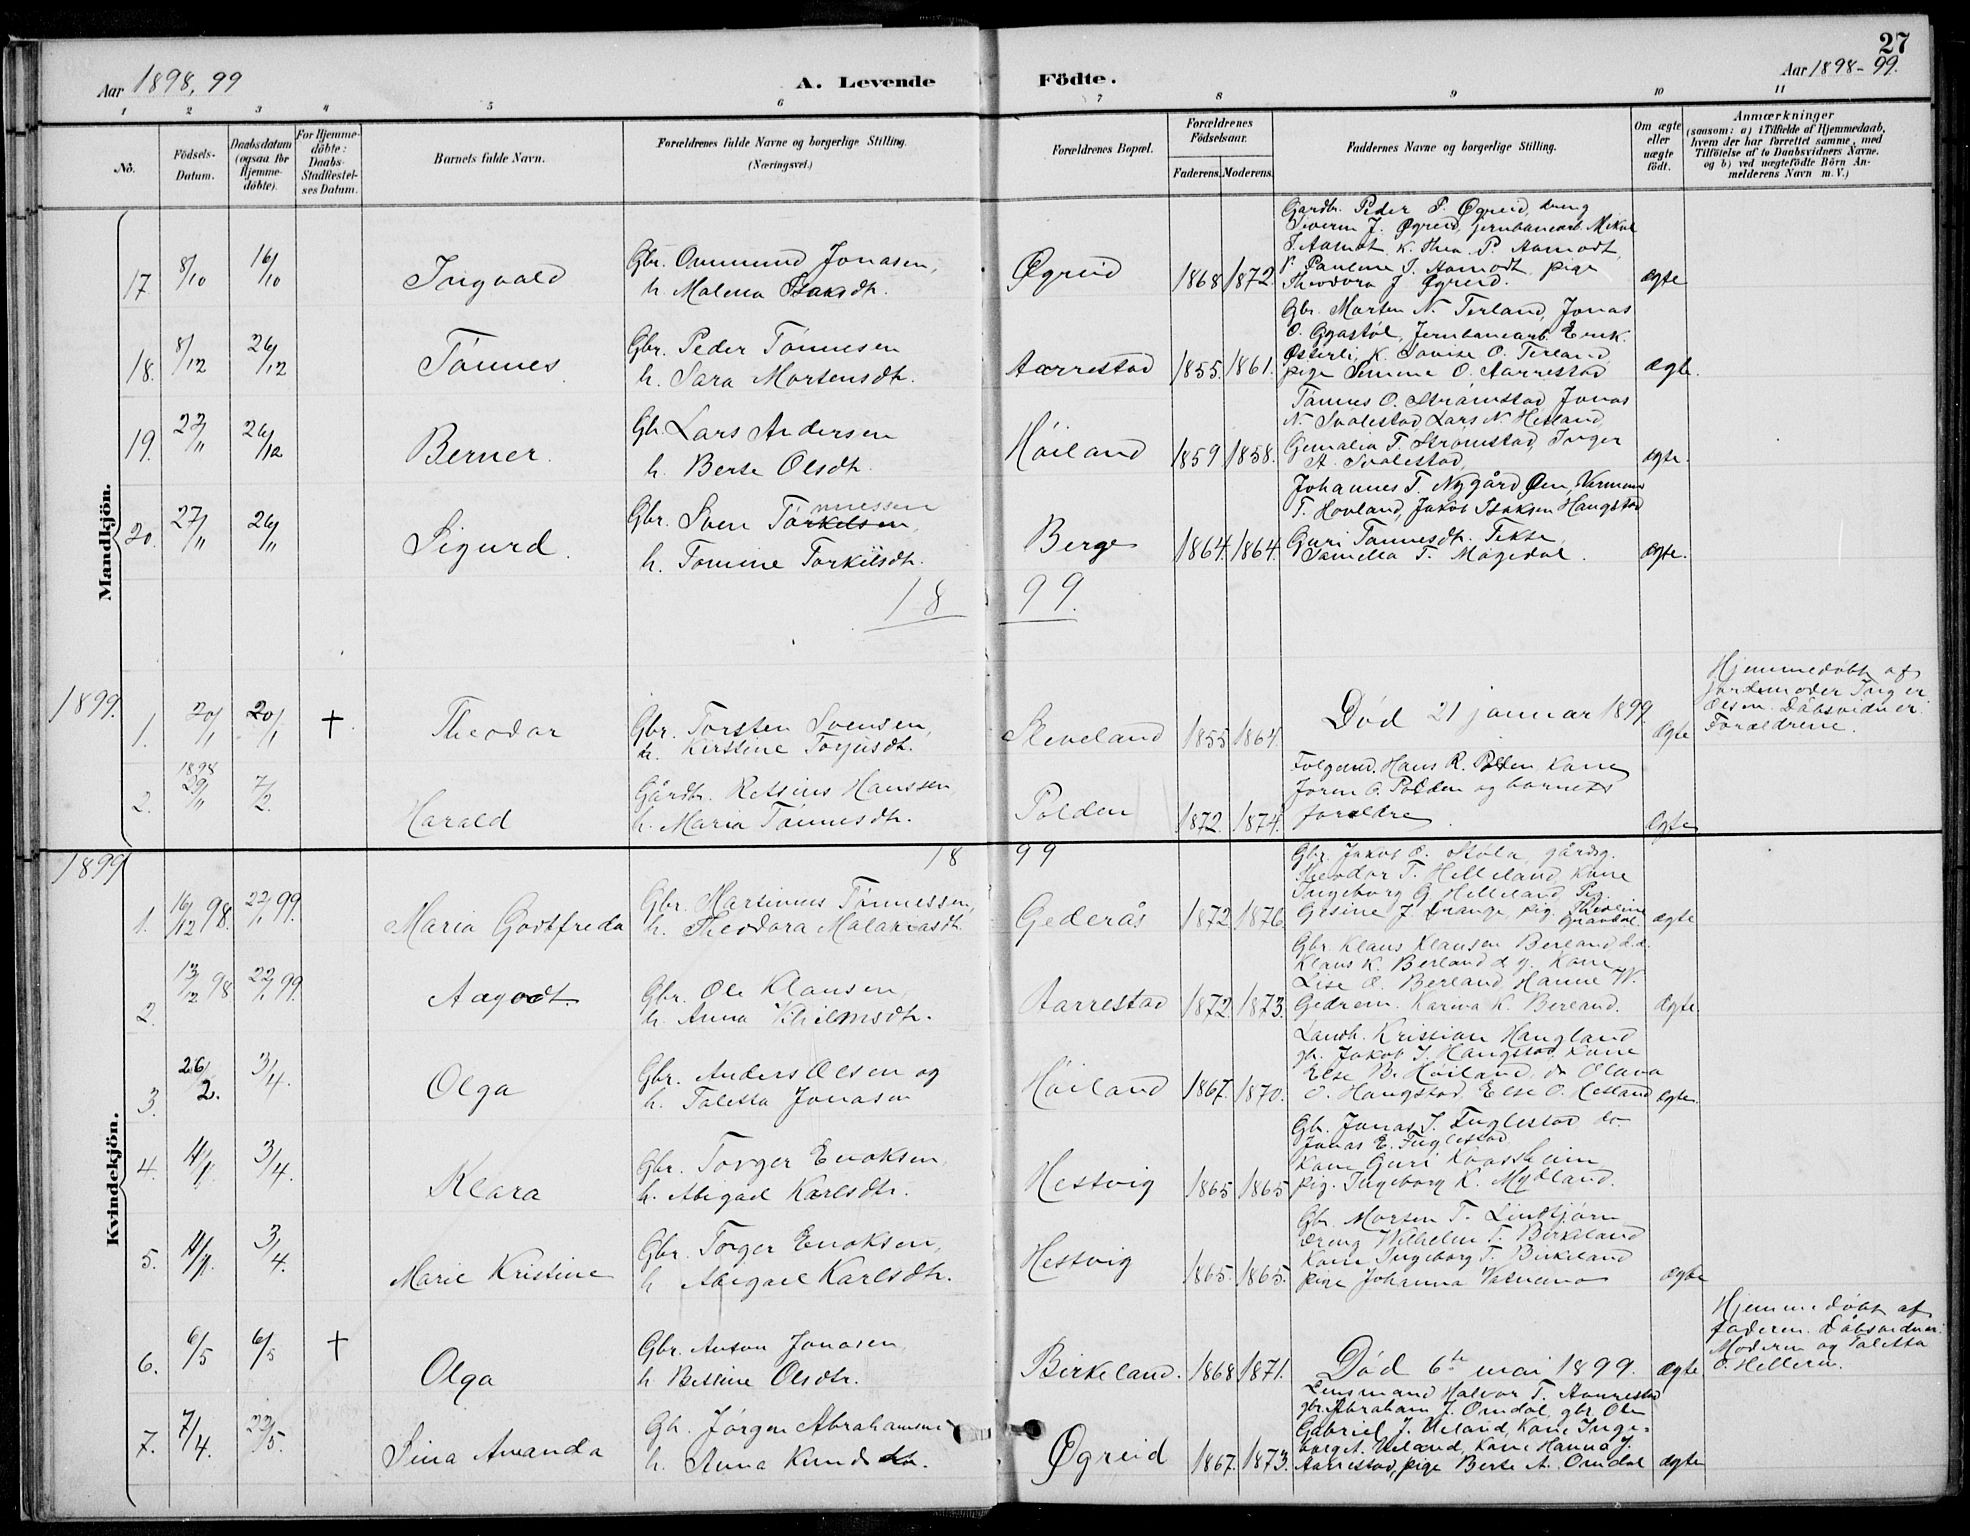 27
Aar 1898, 99
A. Levende Födte.
Aar 1898-99.
1 2 3 4 5 6 7 8 9 10 11
No.
Födsels-Datum.
Daabsdatum (ogsaa for Hjemme-döbte).
For Hjemme-döbte: Daabs-Stadfæstel-ses Datum.
Barnets fulde Navn.
Forældrenes fulde Navne og borgerlige Stilling.
(Næringsvei.)
Forældrenes Bopæl.
Forældrenes Födselsaar.
Faderens. Moderens.
Faddernes Navne og borgerlige Stilling.
Om ægte eller uægte födt.
Anmærkninger
(saasom: a) i Tilfælde af Hjemmedaab,
hvem der har forrettet samme, med
Tilföielse af to Daabsvidners Navne.
og b) ved uægtefödte Börn An-
melderens Navn m. V.)
Mandkjön.
17 8/10 16/10 Ingvald
Gbr. Ommund Jonasen,
h. Malena Isaksdtr.
Øgreid 1868 1872.
Gardbr. Peder P. Øgreid, dreng
Sivorin J. Øgreid, jernbanearb. Mikal
T. Aamot K. Thea P. Aamodt,
P. Pauline T. Aamodt, pige
Theodora J Øgreid.
ægte
18. 8/12 26/12 Tønnes
Gbr. Peder Tønnesen
h. Sara Mortensdtr.
Aarrestad 1855. 1861.
Gbr. Morten N. Terland, Jonas
O. Gyastøl, Jernbanearb. Enok
Østerli, K. Lovise O. Terland,
pige Semine O. Aarrestad
ægte.
19. 22/11 26/12 Berner.
Gbr. Lars Andersen
h. Berte Olsdtr.
Høiland 1859 1858.
Tønnes O. Strømstad, Jonas
N. Svalestad, Lars N. Hetland,
Gemalia T. Strømstad, Inger
A. Svalestad,
ægte.
20. 27/11 26/11 Sigurd.
Gbr. Sven Tørkelsen nnessen
h. Tomine Torkilsdtr.
Berge 1864. 1864.
Johannes T. Nygård Øen,
T. Hovland, Jakob Isaksen Haugstad
Guri Tønnesdtr. Tekse,
Samella T. Møgedal.
ægte.
1899.
1899.
1. 20/1 20/1 + Theodor
Gbr. Torsten Svensen,
h. Kirstine Torjusdtr.
Skeveland 1855 1864.
Død 21 januar 1899.
Ægte
Hjemmedøbt af
jordemoder Inger
Olsen. Dåbsvidner
Forældrene.
2. 1898 29/11 7/2. Harald
Gårdbr. Retsius Hanssen,
h. Maria Tønnesdtr.
Polden 1872. 1874.
Folgend. Hans R. Polden Kone
Joren O. Polden og barnets
forældre.
Ægte
1899
1899
Kvindekjön.
1. 16/12 98. 22/1 99. Maria Godtfreda
Gbr. Martinus Tønnessen,
h. Theodora Malakiasdtr.
Gederås 1872 1876.
Gbr. Jakob O. Støla, gårdg.
Theodor T. Helleland, Kone
Ingeborg G Helleland Pig.
Gesine J Drange, pig. Theoline
ægte
2. 13/12 98 22/1 99. Aagodt.
Gbr. Ole Klausen,
h. Anna Vilhelmsdtr.
Aarrestad 1872 1873.
Gbr. Klaus Klausen Berland d.e.
Klaus K. Berland d y. Kone
Lise O. Berland, Hanne W.
Gedrem. Karina K. Berland.
ægte.
3. 26/2. 3/4. Olga
Gbr. Anders Olsen og
h. Taletta Jonasen
Høiland 1867. 1870.
Landh. Kristian Haugland
gb. Jakob I. Haugstad, Kone
Else B. Høiland, do Olava
O. Haugstad, Else O. Hetland
ægte.
4. 11/1. 3/4. Klara
Gbr. Torger Enoksen,
h. Abigael Karlsdtr.
Hestvig 1865 1865
Gb. Jonas I. Fuglestad do.
Jonas E. Fuglestad.
Kone Guri Kaasheim
pig. Ingeborg K. Mydland.
5. 11/1. 3/4. Marie Kristine
Gbr. Torger Enoksen,
h Abigael Karlsdtr.
Hestvig 1865. 1865.
Gb. Morten T. Lindtjørn
dreng Wilhelm T. Birkeland
Kone Ingeborg T. Birkeland
pige Johanna
ægte
6. 6/5 6/5 + Olga
Gbr. Anton Jonasen,
h Betsine Olsdtr.
Birkeland. 1868 1871.
Død 6te mai 1899.
ægte
Hjemmedøbt af
faderen. Dåbsvidner
Moderen og Taletta
O. Helleren.
7. 7/4. 22/5. Sina Amanda
Gb. Jørgen Abrahamsen
h. Anna Knudsdtr.
Øgreid 1867. 1873.
Lensmand Halvor T. Aarrestad
gbr. Abraham J. Omdal, gbr. Ole
Gabriel J. Ueland, Kone Inge-
borg T. Ueland, Kone Hanna J.
Aarrestad, pige Berte A. Omdal
ægte